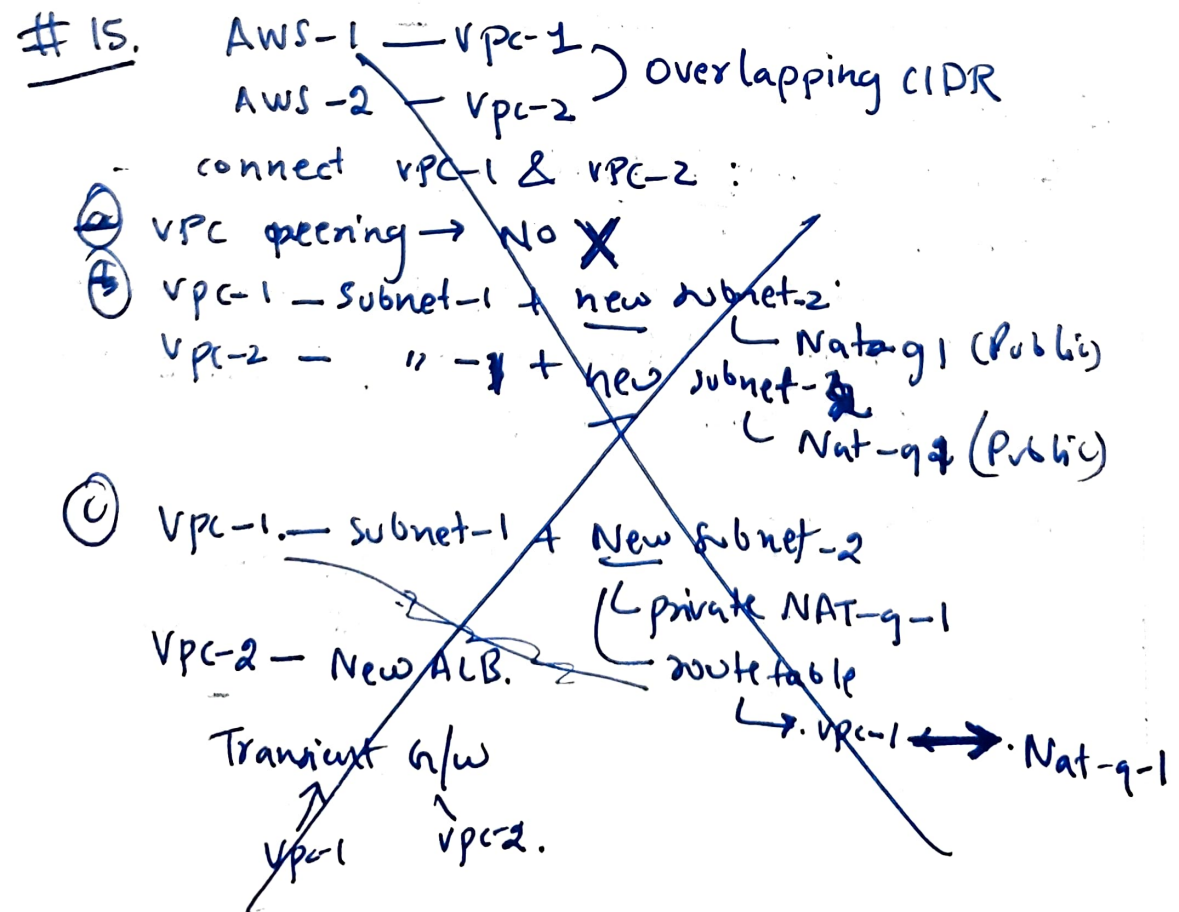 # 15. AWS-1 — vpc-1
AWS-2 — vpc-2
overlapping CIDR
connect vPC-1 & vPC-2 :
a VPC peering → NO X
b vpc-1 — subnet-1 + new subnet-2
Nat-g1 (Public)
vpc-2 — " -1 + new subnet-2
Nat-g (Public)
C Vpc-1. — subnet-1 + New subnet-2
private NAT-g-1
Vpc-2 — New ALB.
route table
→ . VPC-1 ↔ . Nat-g-1
G/W
vpc-1 vpc-2.